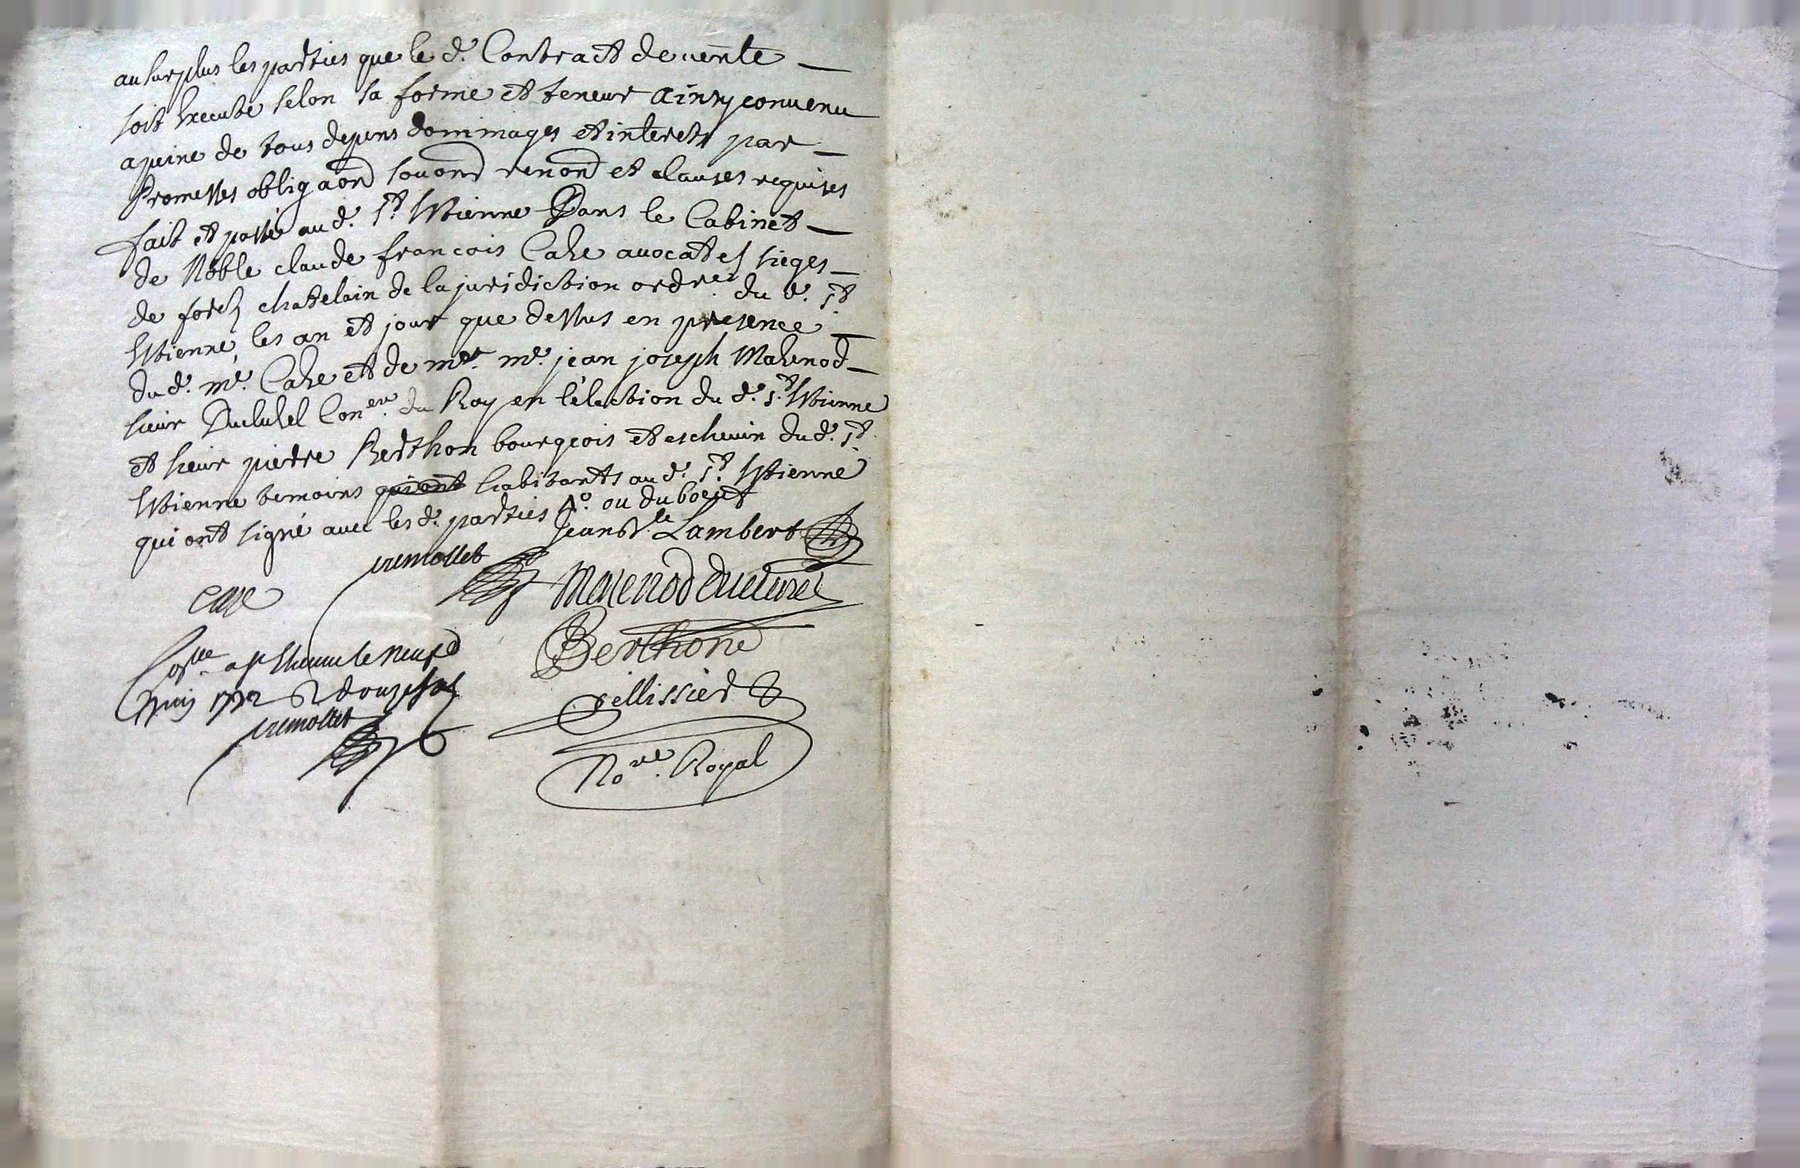 au surplus les parties que le d. Contract de vente
soit Executé selon sa forme et teneur ainsy convenu
a peine de tous depens dommages et interets par
Promesses obligaon souon renon et clauses requises
fait et passé au d. St Estienne Dans le Cabinet
de Noble claude francois Caze avocat es sieges
de forest chatelain de la juridiction ordre du d. St
Estienne, les an et jour que dessus en presence
du d. me. Caze et de me. jean joseph Mazenod
sieur Duclusel Coner. du Roy en l'élection du d. St Estienne
et sieur pierre Berthon bourgeois et eschevin du d. St
Estienne temoins habitants au d. St Estienne
qui ont signé avec les d. parties
Lambert
cremollet
caze
Mazenod
Berthon
1712
cremollet
Pellissier
Nore. Royal